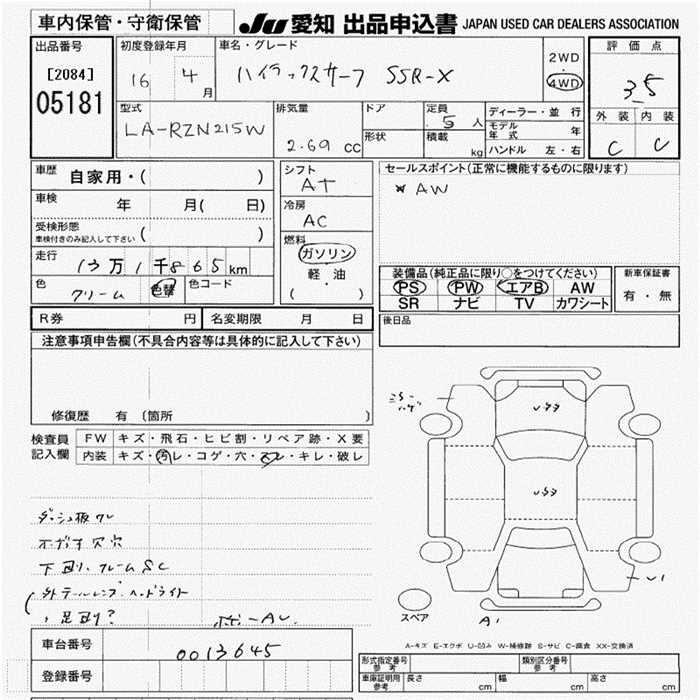 車内保管・守衛保管
JU 愛知 出品申込書 JAPAN USED CAR DEALERS ASSOCIATION
出品番号
[2084]
05181
初度登録年月
16 4月
車名・グレード
ハイラックスサーフ SSR-X
2WD
・
4WD
評価点
3.5
外装 内装
C C
型式
LA-RZN215W
排気量
2.69 CC
ドア
形状
定員
5人
積載
kg
ディーラー・並行
モデル年式 年
ハンドル 左・右
車歴 自家用・( )
車検 年 月( 日)
受検形態
車検付きのみ記入して下さい ( )
走行
13万1千865km
色
クリーム 色替
色コード
シフト
AT
冷房
AC
燃料
ガソリン
軽・油
( )
セールスポイント(正常に機能するものに限ります)
* AW
装備品(純正品に限り○をつけてください)
PS PW エアB AW
SR ナビ TV カワシート
新車保証書
有・無
R券 円 名変期限 月 日
後日品
注意事項申告欄(不具合内容等は具体的に記入して下さい)
修復歴 有 (箇所 )
検査員
記入欄
FW キズ・飛石・ヒビ割・リペア跡・X要
内装 キズ・汚レ・コゲ・穴・スレ・キレ・破レ
ダッシュ板ワレ
下回り、フレームSC
外テールレンズ・ヘッドライト
、足回り?
ミラー
U43
U43
U1
A1
スペア
A-キズ E-エクボ U-凹み W-補修跡 S-サビ C-腐食 XX-交換済
車台番号 0013645
登録番号
形式指定番号 参考
類別区分番号 参考
車庫証明用 参考 長さ cm 幅 cm 高さ cm